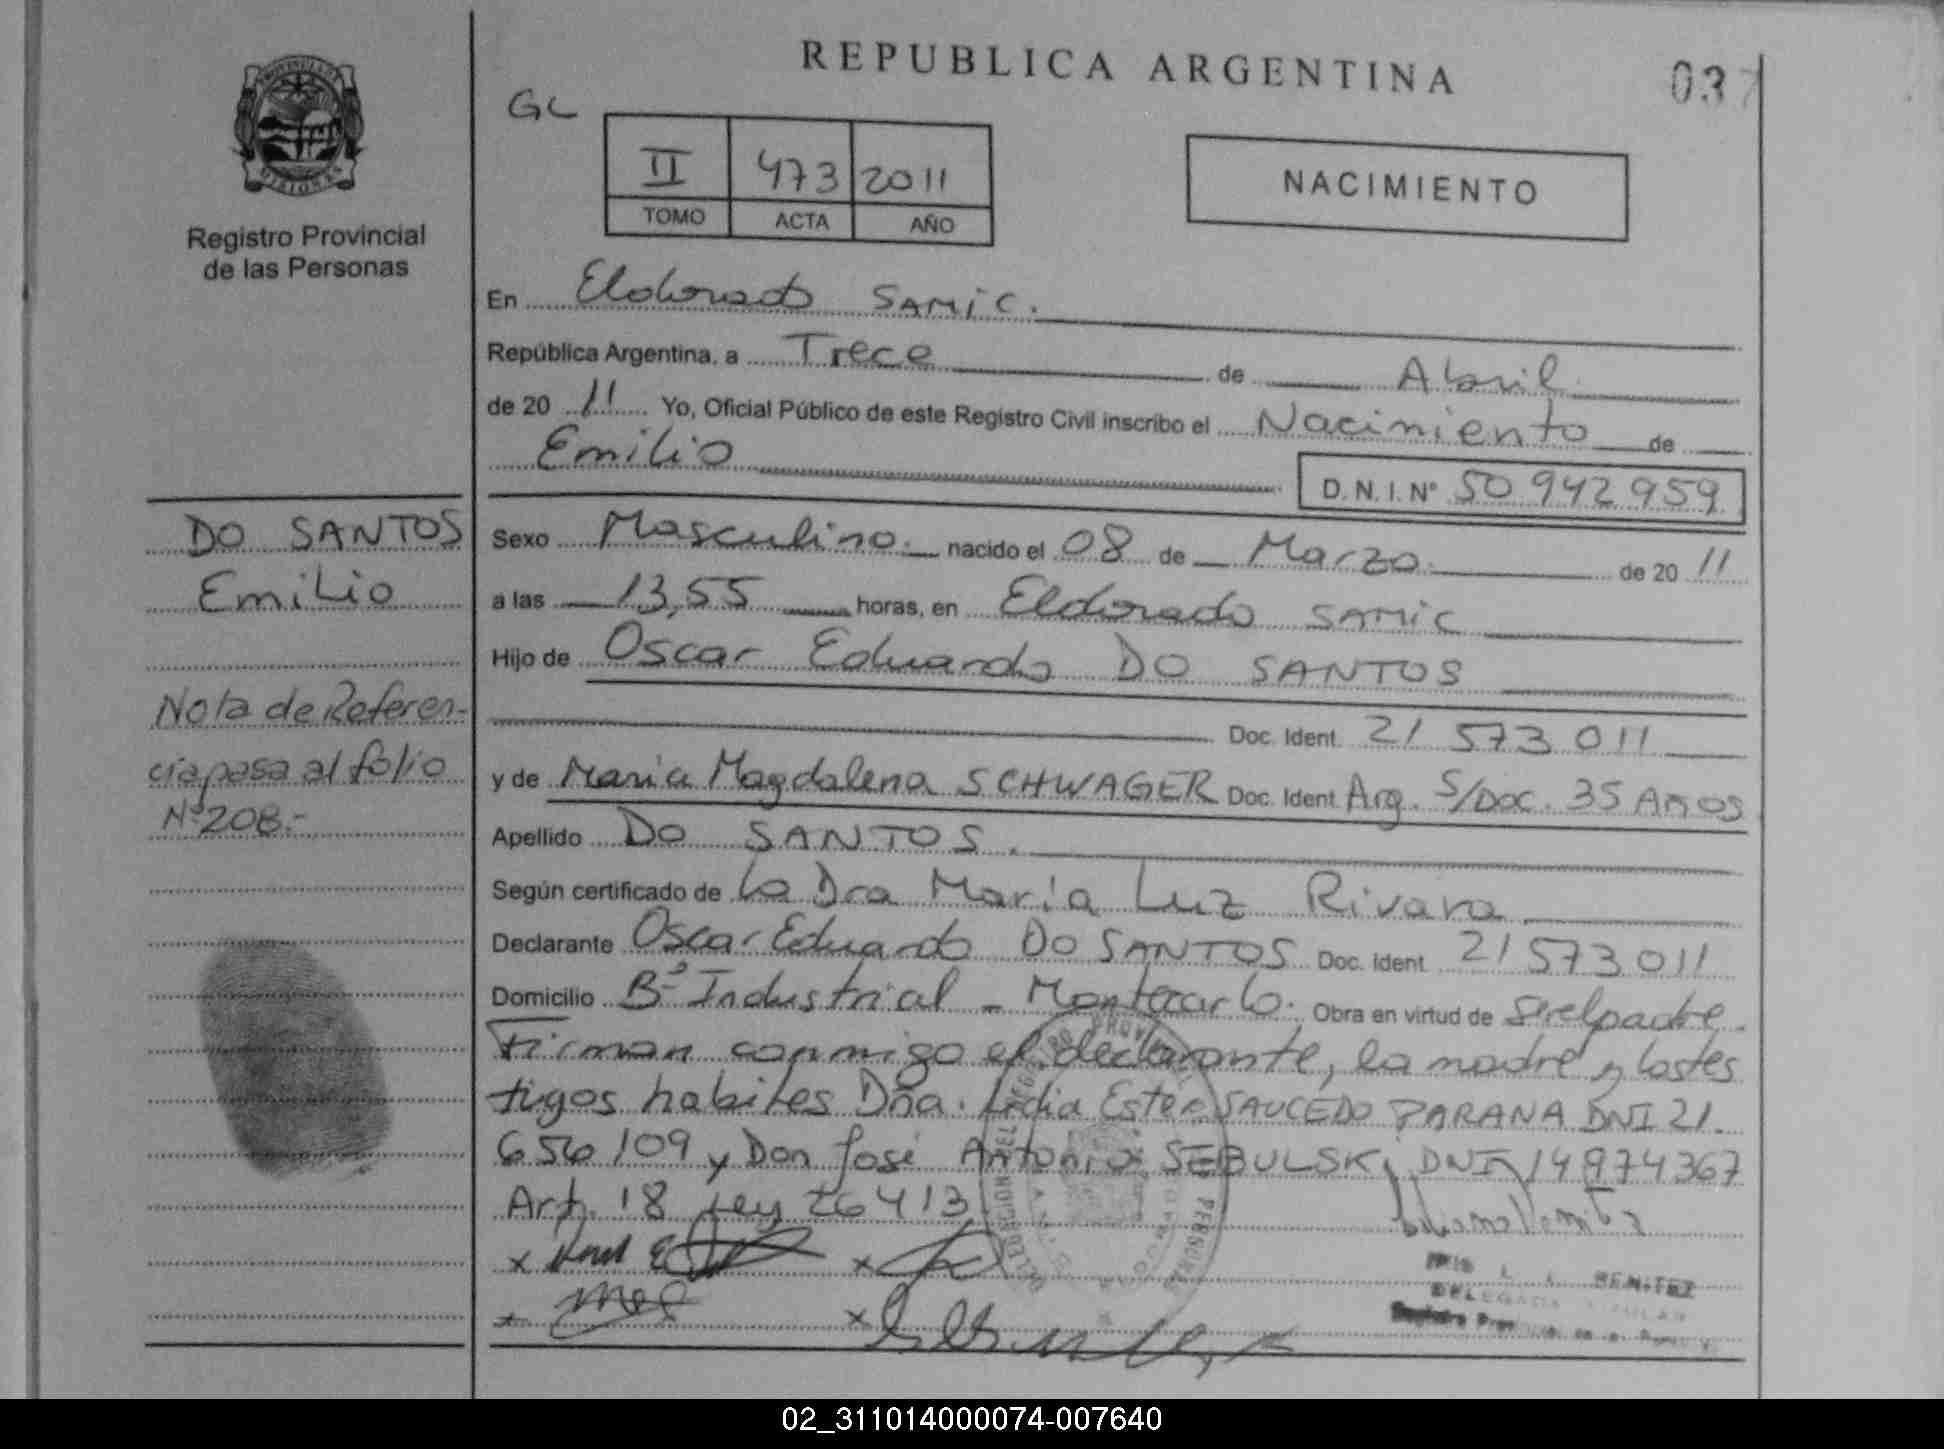 REPUBLICA ARGENTINA
037
PROVINCIA DE MISIONES
Registro Provincial
de las Personas
GL
II 473 2011
TOMO ACTA AÑO
NACIMIENTO
En Eldorado SAMIC.
República Argentina, a Trece de Abril
de 20 11 Yo, Oficial Público de este Registro Civil inscribo el Nacimiento de
Emilio
D.N.I. Nº 50 942 959
DO SANTOS
Emilio
Nota de Referen-
cia pasa al folio
Nº 208.-
Sexo Masculino. nacido el 08 de Marzo. de 20 11
a las 13,55 horas, en Eldorado SAMIC
Hijo de Oscar Eduardo DO SANTOS
Doc. Ident. 21 573 011
y de Maria Magdalena SCHWAGER Doc. Ident. Arg. S/Doc. 35 Años
Apellido DO SANTOS.
Según certificado de La Dra María Luz Rivara
Declarante Oscar Eduardo DO SANTOS Doc. Ident. 21 573 011
Domicilio Bº Industrial - Montecarlo. Obra en virtud de ser el padre.
Firman conmigo el declarante, la madre y los tes
tigos habiles Dña. Lidia Ester SAUCEDO PARANA DNI 21.
656 109 y Don José Antonio SEBULSKI DNI 14 974 367
Art. 18 Ley 26413
IRIS L. BENITEZ
DELEGADA TITULAR
02_311014000074-007640